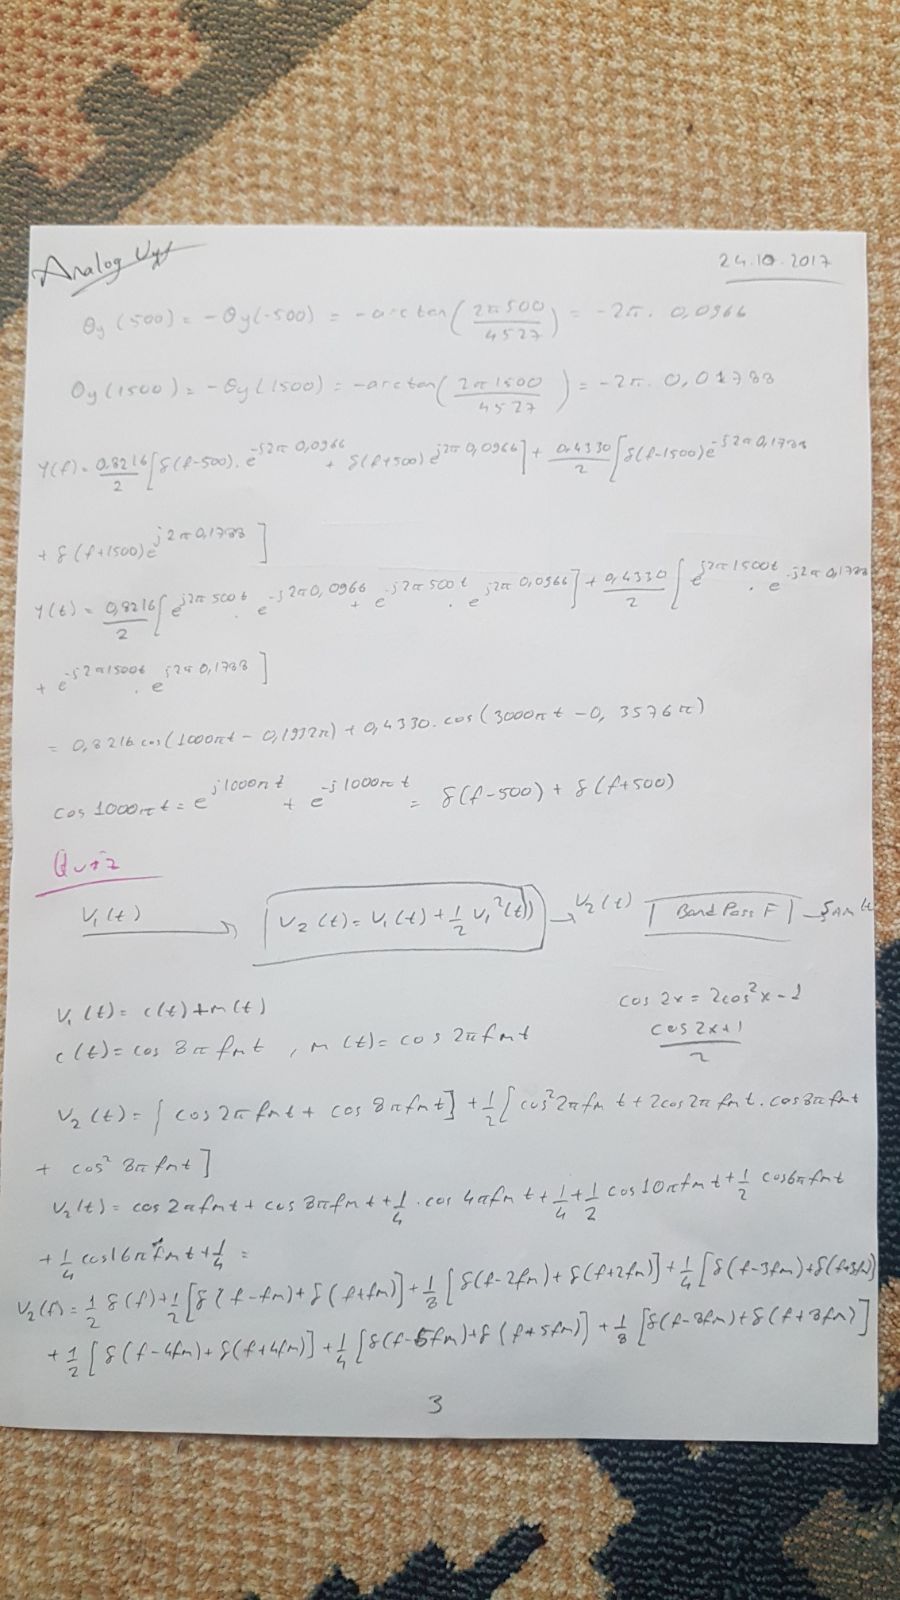 Analog Uyg
24.10.2017
θy(500) = -θy(-500) = -arctan(2π500/4527) = -2π. 0,0966
θy(1500) = -θy(1500) = -arctan(2π1500/4527) = -2π. 0,01788
Y(f) = 0,8216/2 [δ(f-500). e^-j2π0,0966 + δ(f+500) e^j2π0,0966] + 0,4330/2 [δ(f-1500) e^-j2π0,1788
+ δ(f+1500) e^j2π0,1788]
Y(t) = 0,8216/2 [e^j2π500t . e^-j2π0,0966 + e^-j2π500t . e^j2π0,0966] + 0,4330/2 [e^j2π1500t . e^-j2π0,1788
+ e^-j2π1500t . e^j2π0,1788]
= 0,8216 cos(1000πt - 0,1932π) + 0,4330. cos(3000πt - 0,3576π)
cos 1000πt = e^j1000πt + e^-j1000πt = δ(f-500) + δ(f+500)
Quiz
V₁(t) → V₂(t) = V₁(t) + 1/2 V₁²(t)) → V₂(t) Band Pass F → SAM(t
V₁(t) = c(t) + m(t)
cos 2x = 2cos²x - 1
c(t) = cos 8πfmt , m(t) = cos 2πfmt
cos 2x+1/2
V₂(t) = [cos 2πfmt + cos 8πfmt] + 1/2 [cos²2πfm t + 2cos 2πfmt. cos 8πfmt
+ cos² 8πfmt]
V₂(t) = cos 2πfmt + cos 8πfmt + 1/4 . cos 4πfmt + 1/4 + 1/2 cos 10πfmt + 1/2 cos6πfmt
+ 1/4 cos16πfmt + 1/4 =
V₂(f) = 1/2 δ(f) + 1/2 [δ(f-fm) + δ(f+fm)] + 1/8 [δ(f-2fm) + δ(f+2fm)] + 1/4 [δ(f-3fm) + δ(f+3fm)]
+ 1/2 [δ(f-4fm) + δ(f+4fm)] + 1/4 [δ(f-5fm) + δ(f+5fm)] + 1/8 [δ(f-8fm) + δ(f+8fm)]
3